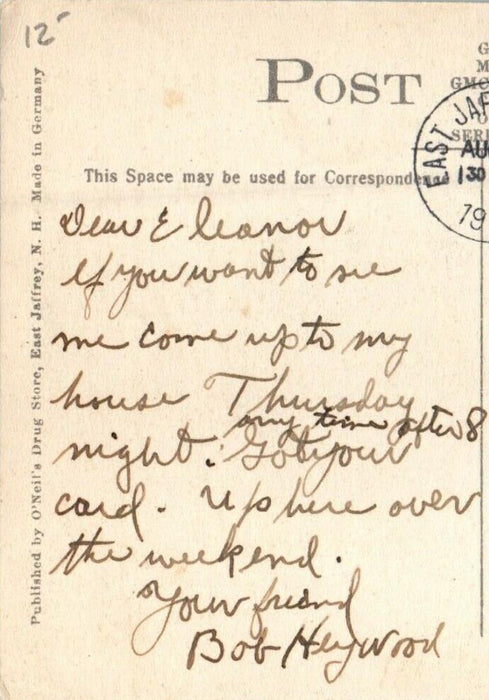 12-
POST
G
M
GMC
SERI
EAST JAF
AU
130
19
This Space may be used for Correspondence
Published by O'Neil's Drug Store, East Jaffrey, N. H. Made in Germany
Dear Eleanor
If you want to see
me come up to my
house Thursday
any time after 8
night. Got your
card. Up here over
the weekend.
Your friend
Bob Heywood